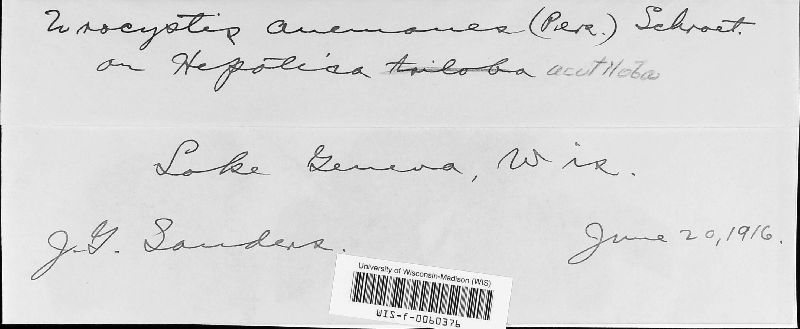 Urocystis anemones (Pers.) Schroet.
on Hepatica triloba acutiloba
Lake Geneva, Wis.
J.G. Sanders.
June 20, 1916.
University of Wisconsin-Madison (WIS)
WIS-f-0060376